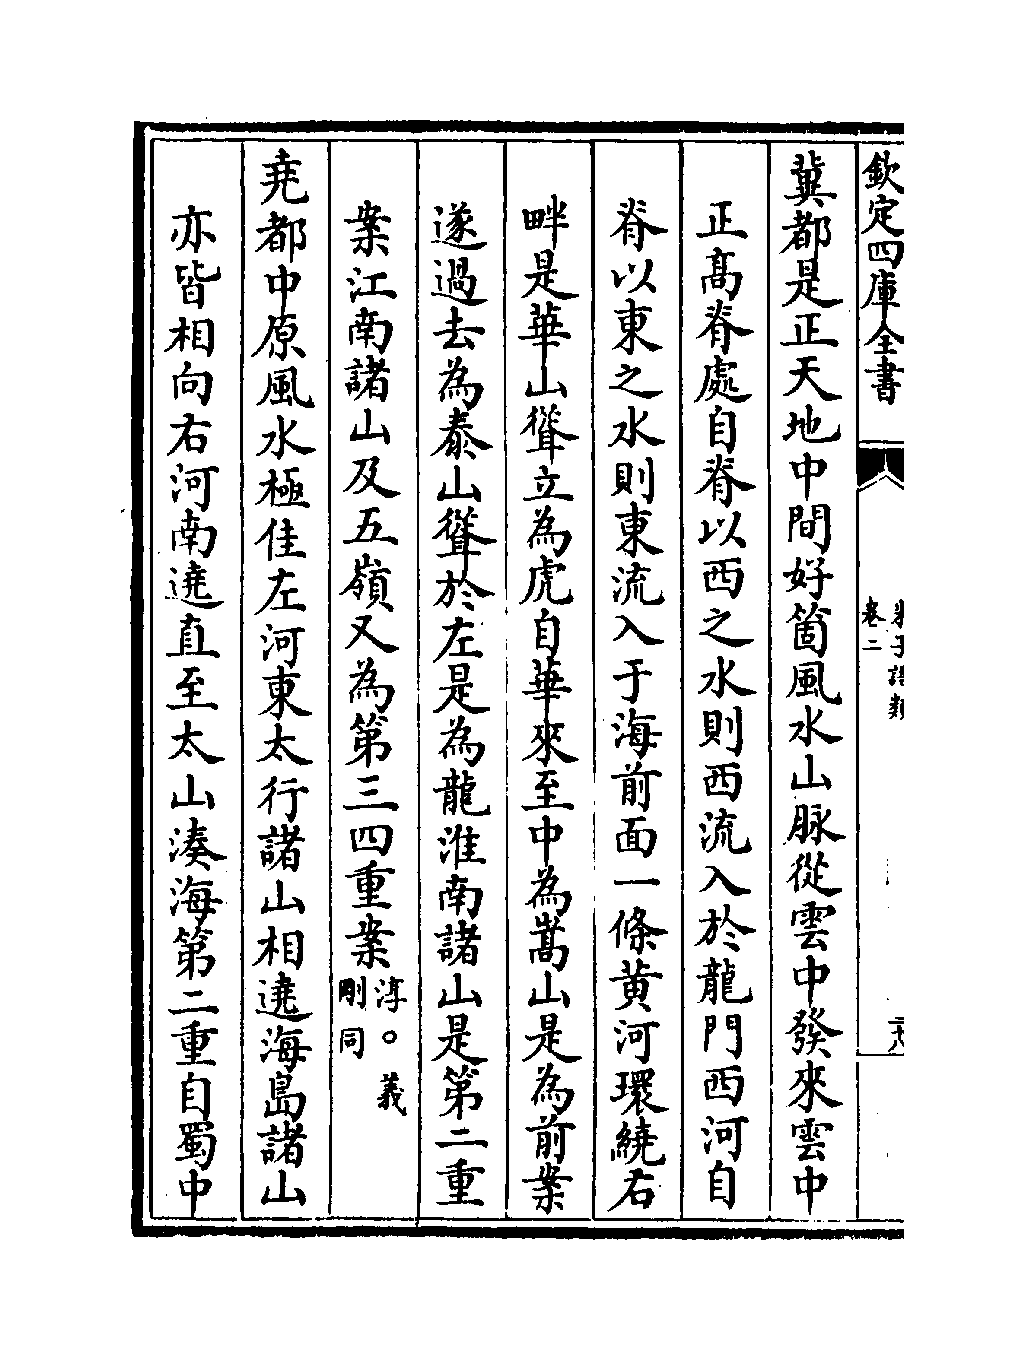 欽定四庫全書
朱子語類
卷二
二十八
冀都是正天地中間好箇風水山脉從雲中發來雲中
正髙脊處自脊以西之水則西流入於龍門西河自
脊以東之水則東流入于海前面一條黄河環繞右
畔是華山聳立為虎自華來至中為嵩山是為前案
遂過去為泰山聳於左是為龍淮南諸山是第二重
案江南諸山及五嶺又為第三四重案淳○義
剛同
堯都中原風水極佳左河東太行諸山相遶海島諸山
亦皆相向右河南遶直至太山湊海第二重自蜀中